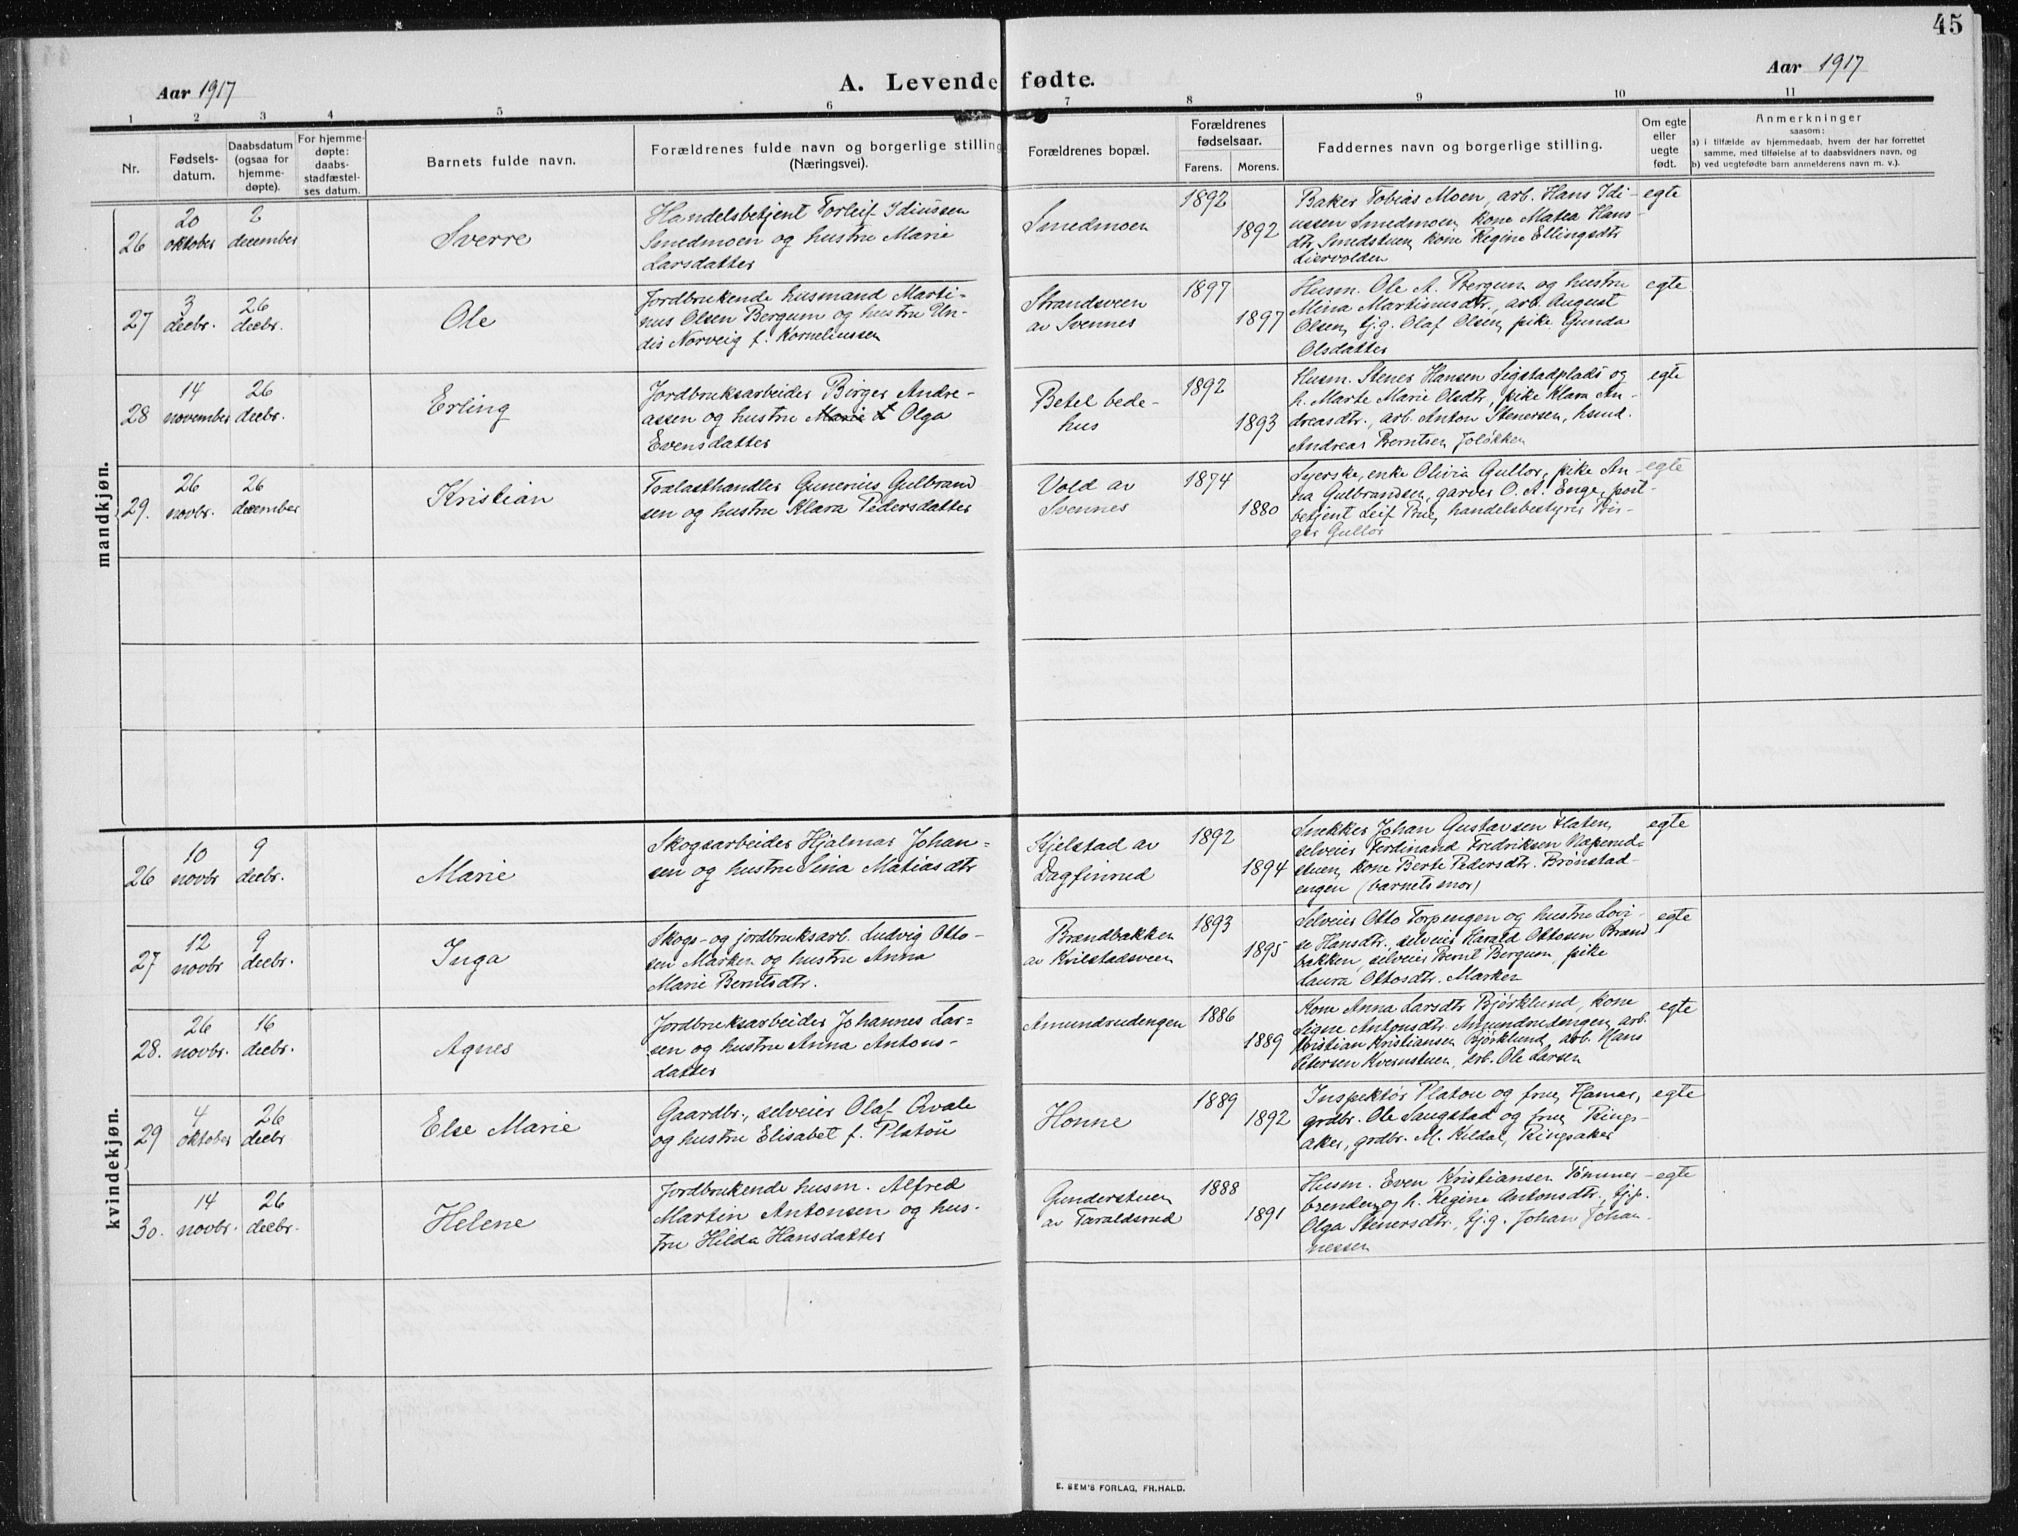 45
Aar 1917
A. Levende fødte.
Aar 1917
1 2 3 4 5 6 7 8 9 10 11
Nr.
Fødsels-
datum.
Daabsdatum
(ogsaa for
hjemme-
døpte).
For hjemme-
døpte:
daabs-
stadfæstel-
ses datum.
Barnets fulde navn.
Forældrenes fulde navn og borgerlige stilling
(Næringsvei).
Forældrenes bopæl.
Forældrenes
fødselsaar.
Farens. Morens.
Faddernes navn og borgerlige stilling.
Om egte
eller
uegte
født.
Anmerkninger
saasom:
a) i tilfælde av hjemmedaab, hvem der har forrettet
samme, med tilføielse af to daabsvidners navn, og
b) ved uegtefødte barn anmelderens navn m. v.).
mandkjøn.
26
20
oktober
2
december
Sverre
Handelsbetjent Torleif Idiussen
Smedmoen og hustru Marie
Larsdatter
Smedmoen
1892
1892
Baker Tobias Moen, arb. Hans Idi-
ussen Smedmoen, kone Matea Hans-
dtr. Smedstuen, kone Regine Ellingsdtr
Liervolden
egte
27
3
decbr.
26
decbr.
Ole
Jordbrukende husmand Marti-
nus Olsen Bergum og hustru Un-
dis Norveig f. Korneliussen
Strandsveen
av Svennes
1897
1897
Husm. Ole A. Bergum og hustru
Mina Martinusdtr., arb. August
Olsen, tj.g. Olaf Olsen, pike Gunda
Olsdatter
egte
28
14
november
26
decbr.
Erling
Jordbruksarbeider Birger Andre-
assen og hustru Olga
Evensdatter
Betel bede-
hus
1892
1893
Husm. Stener Hansen Sigstadplads og
h. Marte Marie Olsdtr, pike Klara An-
dreasdtr., arb. Anton Stenersen, husmd.
Andreas Berntsen Joløkken
egte
29.
26
novbr.
26
december
Kristian
Trælasthandler Gunerius Gulbrand
sen og hustru Klara Pedersdatter
Vold av
Svennes
1874
1880
Syerske, enke Olivia Gullor, pike An-
na Gulbrandsen, garver O. A. Enge, post-
betjent Leif Brue, handelsbestyrer Bir-
ger Gullor
egte
kvindekjøn.
26
10
novbr
9
decbr.
Marie
Skogsarbeider Hjalmar Johan-
sen og hustru Lina Matiasdtr
Kjelstad av
Dagfinrud
1892
1894
Snekker Johan Gustavsen Haten,
selveier Ferdinand Fredriksen Næperud-
stuen, kone Berte Pedersdtr. Brønstad-
engen (barnets mor)
egte
27
12
novbr
9
decbr.
Inga
Skogs- og jordbruksarb. Ludvig Otto-
sen Marken og hustru Anna
Marie Berntsdtr.
Brandbakken
av Krilstadsveen
1893
1895
Selveier Otto Torpengen og hustru Lovi-
se Hansdtr., selveier Harald Ottosen Brand
bakken, selveier Bernt Bergum, pike
Laura Ottosdtr. Marken
egte
28.
26
novbr.
16
decbr.
Agnes
Jordbruksarbeider Johannes Lar-
sen og hustru Anna Antons-
datter
Amundrudengen
1886
1889
Kone Anna Larsdtr Bjørklund, kone
Signe Antonsdtr. Amundrudengen, arb.
Kristian Kristiansen Bjørklund, arb. Hans
Petersen Kvernstuen, arb. Ole Larsen
egte
29
4
oktober
26
decbr
Else Marie
Gaardbr., selveier Olaf Qvale
og hustru Elisabet f. Platou
Honne
1889
1892
Inspektør Platou og frue, Hamar,
grdbr. Ole Saugstad og frue, Rings-
aker, grdbr. M. Kildal, Ringsaker
egte
30.
14
novbr.
26
decbr.
Helene
Jordbrukende husm. Alfred
Martin Antonsen og hus-
tru Hilda Hansdatter
Gunderstuen
av Taraldsrud
1888
1891
Husm. Even Kristiansen Tømmer-
brenden og h. Regine Antonsdtr., tj.p.
Olga Stenersdtr., tj.g. Johan Johan-
nessen
egte
E. SEM'S FORLAG, FR.HALD.